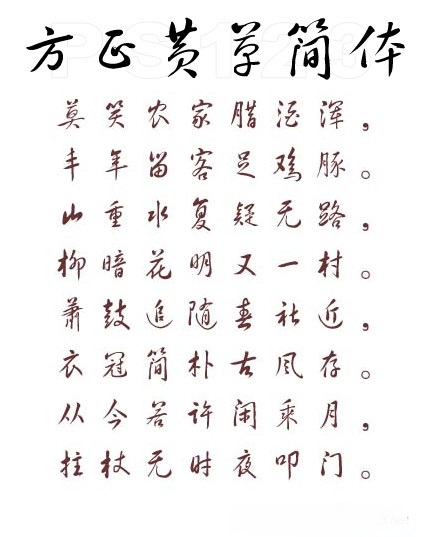 方正黄草简体
莫笑农家腊酒浑，
丰年留客足鸡豚。
山重水复疑无路，
柳暗花明又一村。
萧鼓追随春社近，
衣冠简朴古风存。
从今若许闲乘月，
拄杖无时夜叩门。